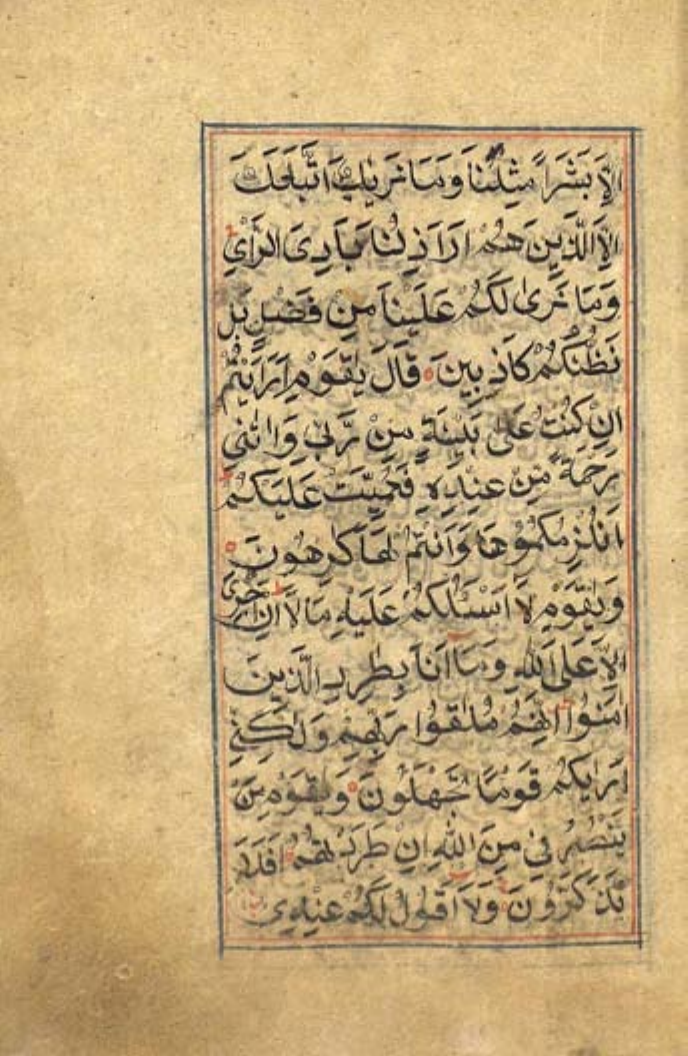 اِلَّا بَشَرًا مِثْلَنَا وَمَا نَرٰىكَ اتَّبَعَكَ
اِلَّا الَّذِيْنَ هُمْ اَرَاذِلُنَا بَادِىَ الرَّاْىِ
وَمَا نَرٰى لَكُمْ عَلَيْنَا مِنْ فَضْلٍ بَلْ
نَظُنُّكُمْ كَاذِبِيْنَ قَالَ يٰقَوْمِ اَرَاَيْتُمْ
اِنْ كُنْتُ عَلٰى بَيِّنَةٍ مِنْ رَّبِّىْ وَاٰتٰنِىْ
رَحْمَةً مِنْ عِنْدِهٖ فَعُمِّيَتْ عَلَيْكُمْ
اَنُلْزِمُكُمُوْهَا وَاَنْتُمْ لَهَا كٰرِهُوْنَ
وَيٰقَوْمِ لَا اَسْئَلُكُمْ عَلَيْهِ مَالًا اِنْ اَجْرِىَ
اِلَّا عَلَى اللّٰهِ وَمَا اَنَا بِطَارِدِ الَّذِيْنَ
اٰمَنُوْا اِنَّهُمْ مُلٰقُوْا رَبِّهِمْ وَلٰكِنِّىْ
اَرٰىكُمْ قَوْمًا تَجْهَلُوْنَ وَيٰقَوْمِ مَنْ
يَنْصُرُنِىْ مِنَ اللّٰهِ اِنْ طَرَدْتُهُمْ اَفَلَا
تَذَكَّرُوْنَ وَلَا اَقُوْلُ لَكُمْ عِنْدِىْ